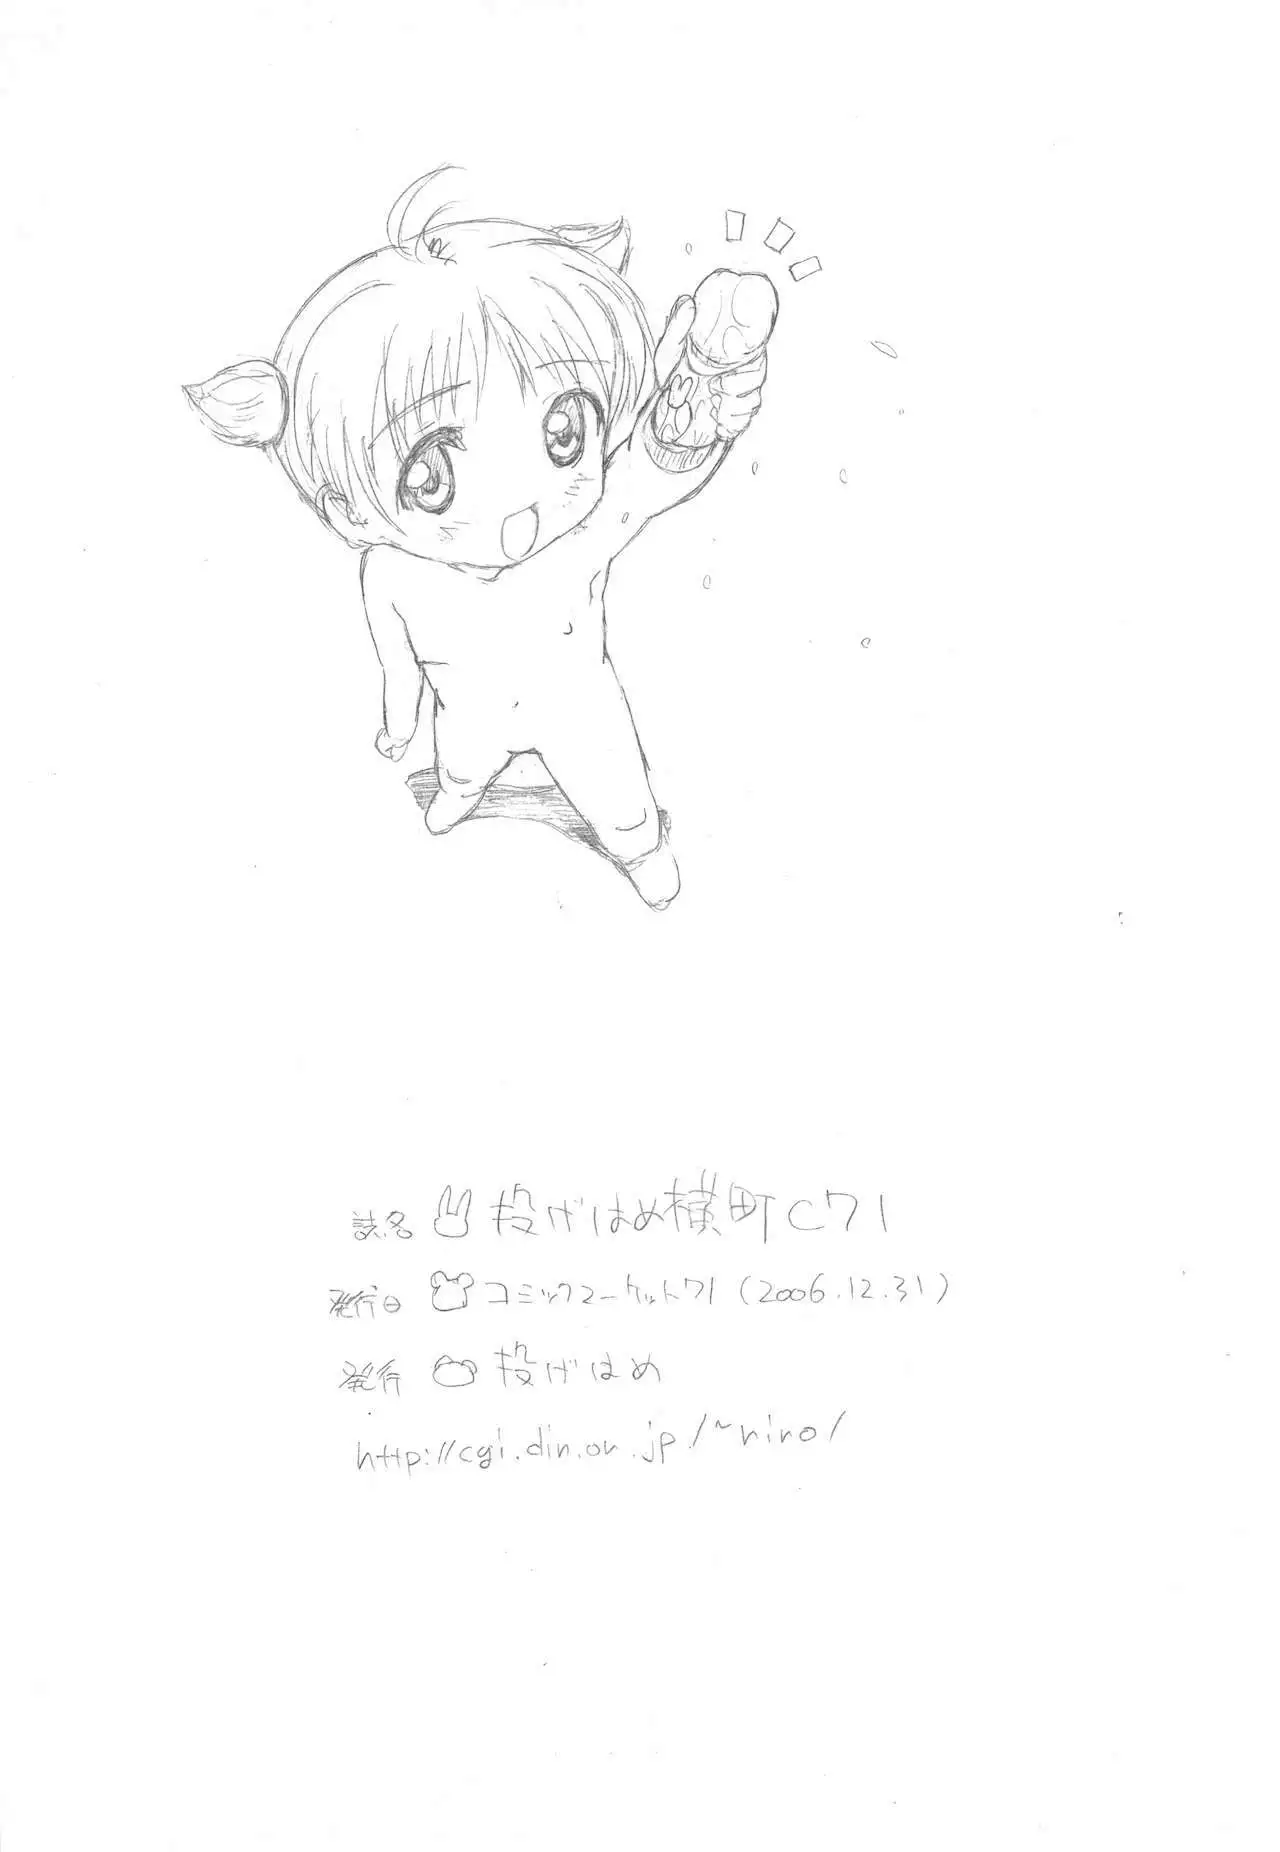 誌名 投げはめ横町C71
発行日 コミックマーケット71 (2006.12.31)
発行 投げはめ
http://cgi.din.or.jp/~niro/